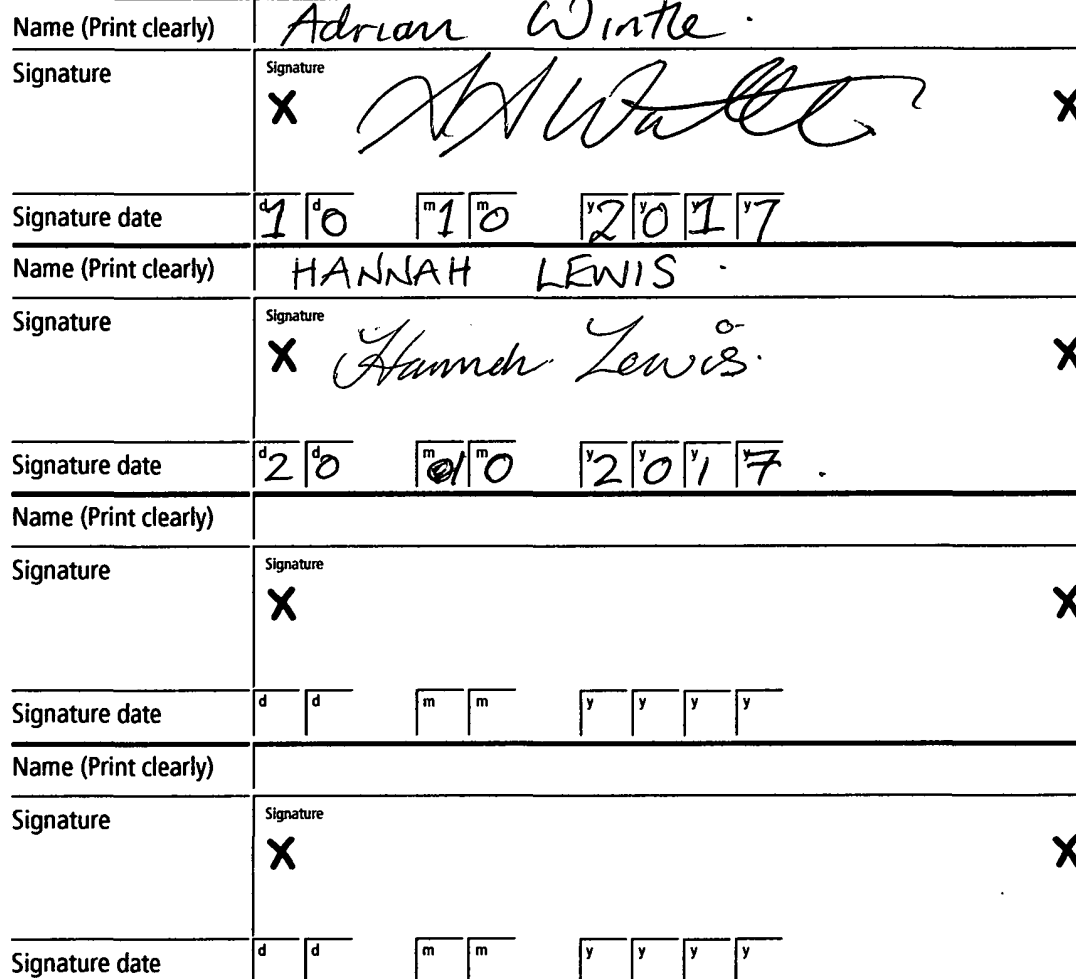 Name (Print clearly) Adrian Wintle .
Signature Signature
X X
Signature date d1 d0 m1 m0 y2 y0 y1 y7
Name (Print clearly) HANNAH LEWIS .
Signature Signature
X Hannah Lewis. X
Signature date d2 d0 m1 m0 y2 y0 y1 y7 .
Name (Print clearly)
Signature Signature
X X
Signature date d d m m y y y y
Name (Print clearly)
Signature Signature
X X
Signature date d d m m y y y y